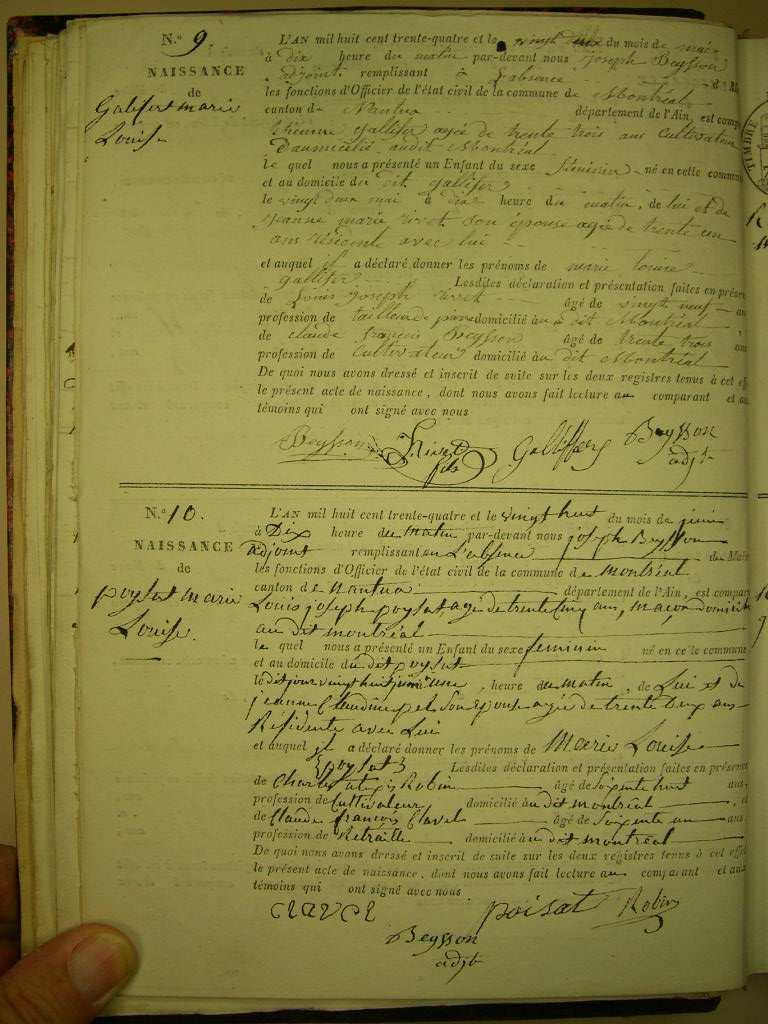 N.° 9.
NAISSANCE
de
Gallifet marie
Louise
L'AN mil huit cent trente-quatre et le vingt deux du mois de mai
à dix heure du matin par-devant nous Joseph Beysson
adjoint remplissant à l'absence du M
les fonctions d'Officier de l'état civil de la commune de Montréal
canton de Nantua département de l'Ain, est comp
Etienne Gallifet agée de trente trois ans Cultivateur
Daumicilié audit Montréal
le quel nous a présenté un Enfant du sexe féminin né en cette commun
et au domicile du dit Gallifet
le vingt deux mai à dix heure du matin, de lui et de
jeanne marie rivet son épouse agée de trente un
ans résidente avec lui
et auquel il a déclaré donner les prénoms de marie louise
Gallifet Lesdites déclaration et présentation faites en présen
de Louis Joseph rivet âgé de vingt neuf ans
profession de tailleur de domicilié au dit Montréal
de claude françois Beysson âgé de trente trois ans
profession de Cultivateur domicilié au dit Montréal
De quoi nous avons dressé et inscrit de suite sur les deux registres tenus à cet eff
le présent acte de naissance, dont nous avons fait lecture au comparant et au
témoins qui ont signé avec nous
Beysson Rivet fils Galliffet Beysson
adjt
N.° 10.
NAISSANCE
de
poysat marie
Louise.
L'AN mil huit cent trente-quatre et le vingt huit du mois de juin
à Dix heure du matin par-devant nous joseph Beysson
adjoint remplissant en L'absence du Mai
les fonctions d'Officier de l'état civil de la commune de montréal
canton de nantua département de l'Ain, est compar
Louis joseph poysat, agé de trente cinq ans, maçon domicilié
au dit montréal
le quel nous a présenté un Enfant du sexe feminin né en cette commune
et au domicile du dit poysat
le dit jour vingt huit juin une, heure du matin, de Lui et de
jeanne Claudine son epouse agée de trente ans
Résidente avec Lui
et auquel il a déclaré donner les prénoms de Marie Louise
poysat Lesdites déclaration et présentation faites en présen
de Charles alexis Robin âgé de soixente huit ans,
profession de Cultivateur domicilié au dit montréal, et
de Claude françois Clavel âgé de soixente un ans
profession de Retraitte domicilié au dit montréal
De quoi nous avons dressé et inscrit de suite sur les deux registres tenus à cet effet
le présent acte de naissance, dont nous avons fait lecture au comparant et aux
témoins qui ont signé avec nous
clavel poisat Robin
Beysson
adjt
TIMBRE